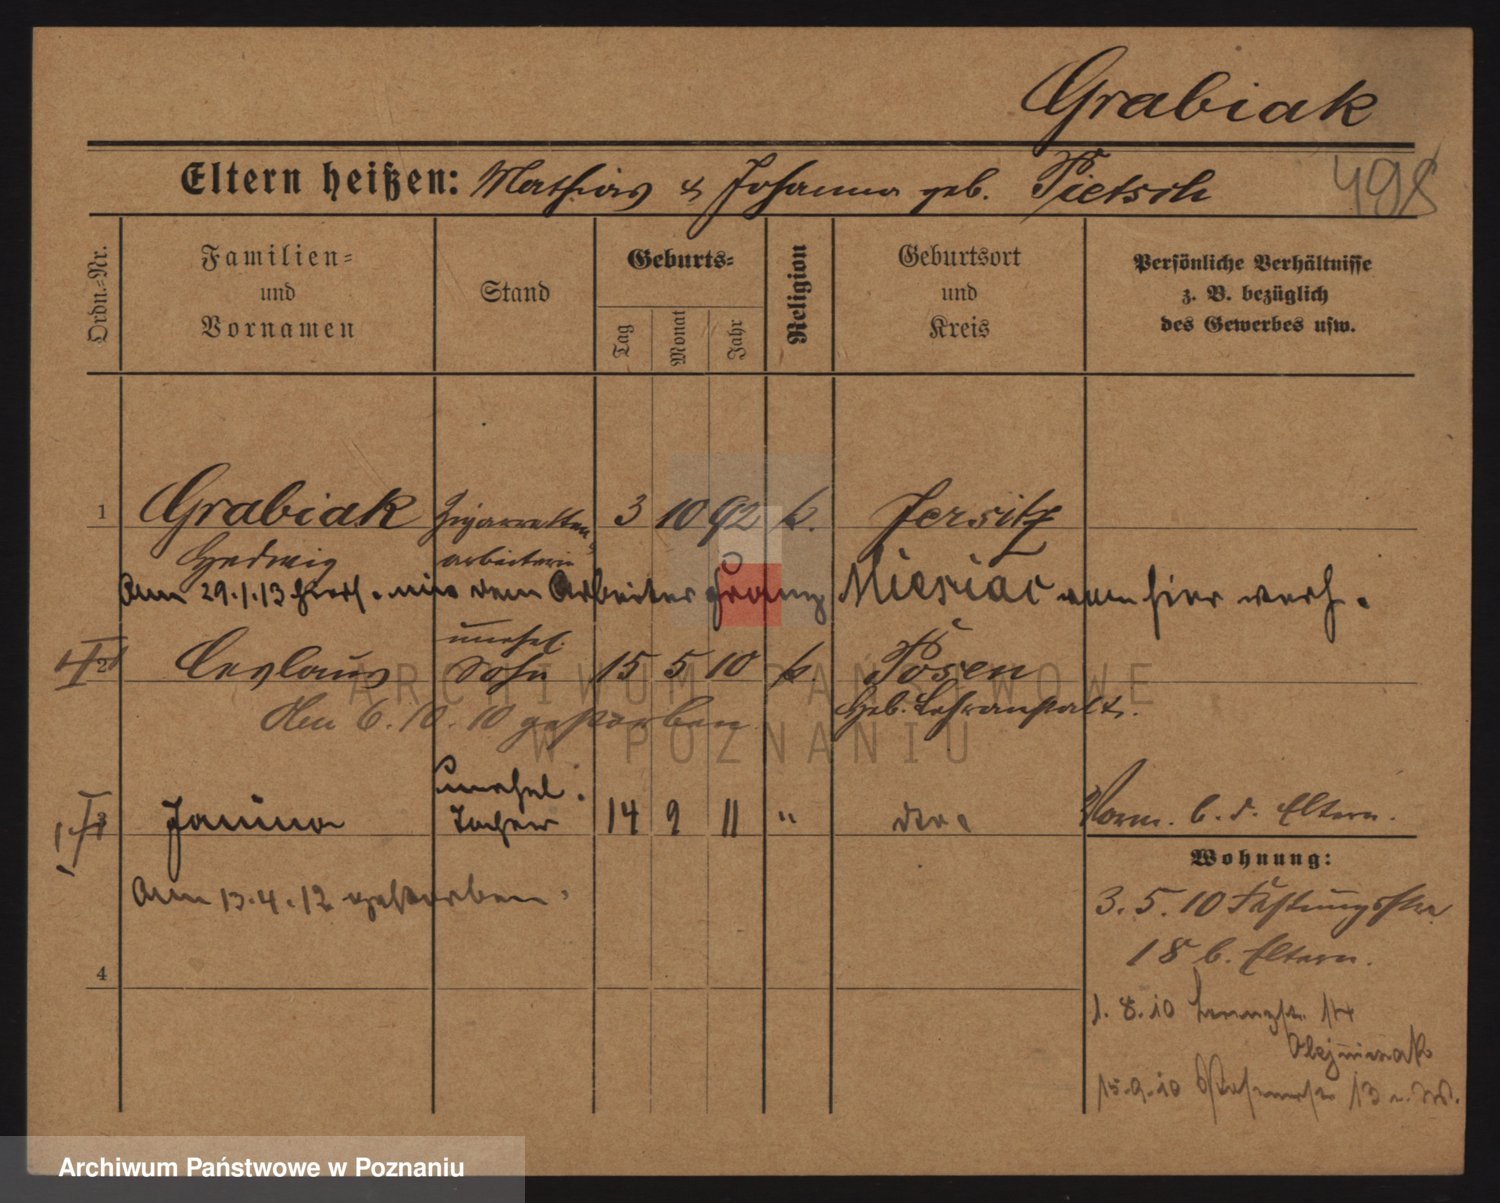 Grabiak
Eltern heißen: Mathias & Johanna geb. Pietsch
498
Ordn.-Nr.
Familien=
und
Vornamen
Stand
Geburts=
Tag
Monat
Jahr
Religion
Geburtsort
und
Kreis
Persönliche Verhältnisse
z. B. bezüglich
des Gewerbes usw.
1 Grabiak Zigaretten 3 10 92 k. Jersitz
Hedwig arbeiterin
Am 29.1.13 hiers. mit dem Arbeiter Franz Miesiac von hier verh.
unehel.
2 Ceslaus Sohn 15 5 10 k. Posen
Am 6.10.10 gestorben. Heb. Lehranstalt.
unehel.
3 Janina Tochter 14 9 11 " dto. Vorm. b. d. Eltern.
Wohnung:
Am 13.4.12 gestorben. 3.5.10 Festungsstr.
18 b. Eltern.
4
1.8.10 14
Olejniczak
15.9.10 13
ARCHIWUM PAŃSTWOWE
W POZNANIU
Archiwum Państwowe w Poznaniu